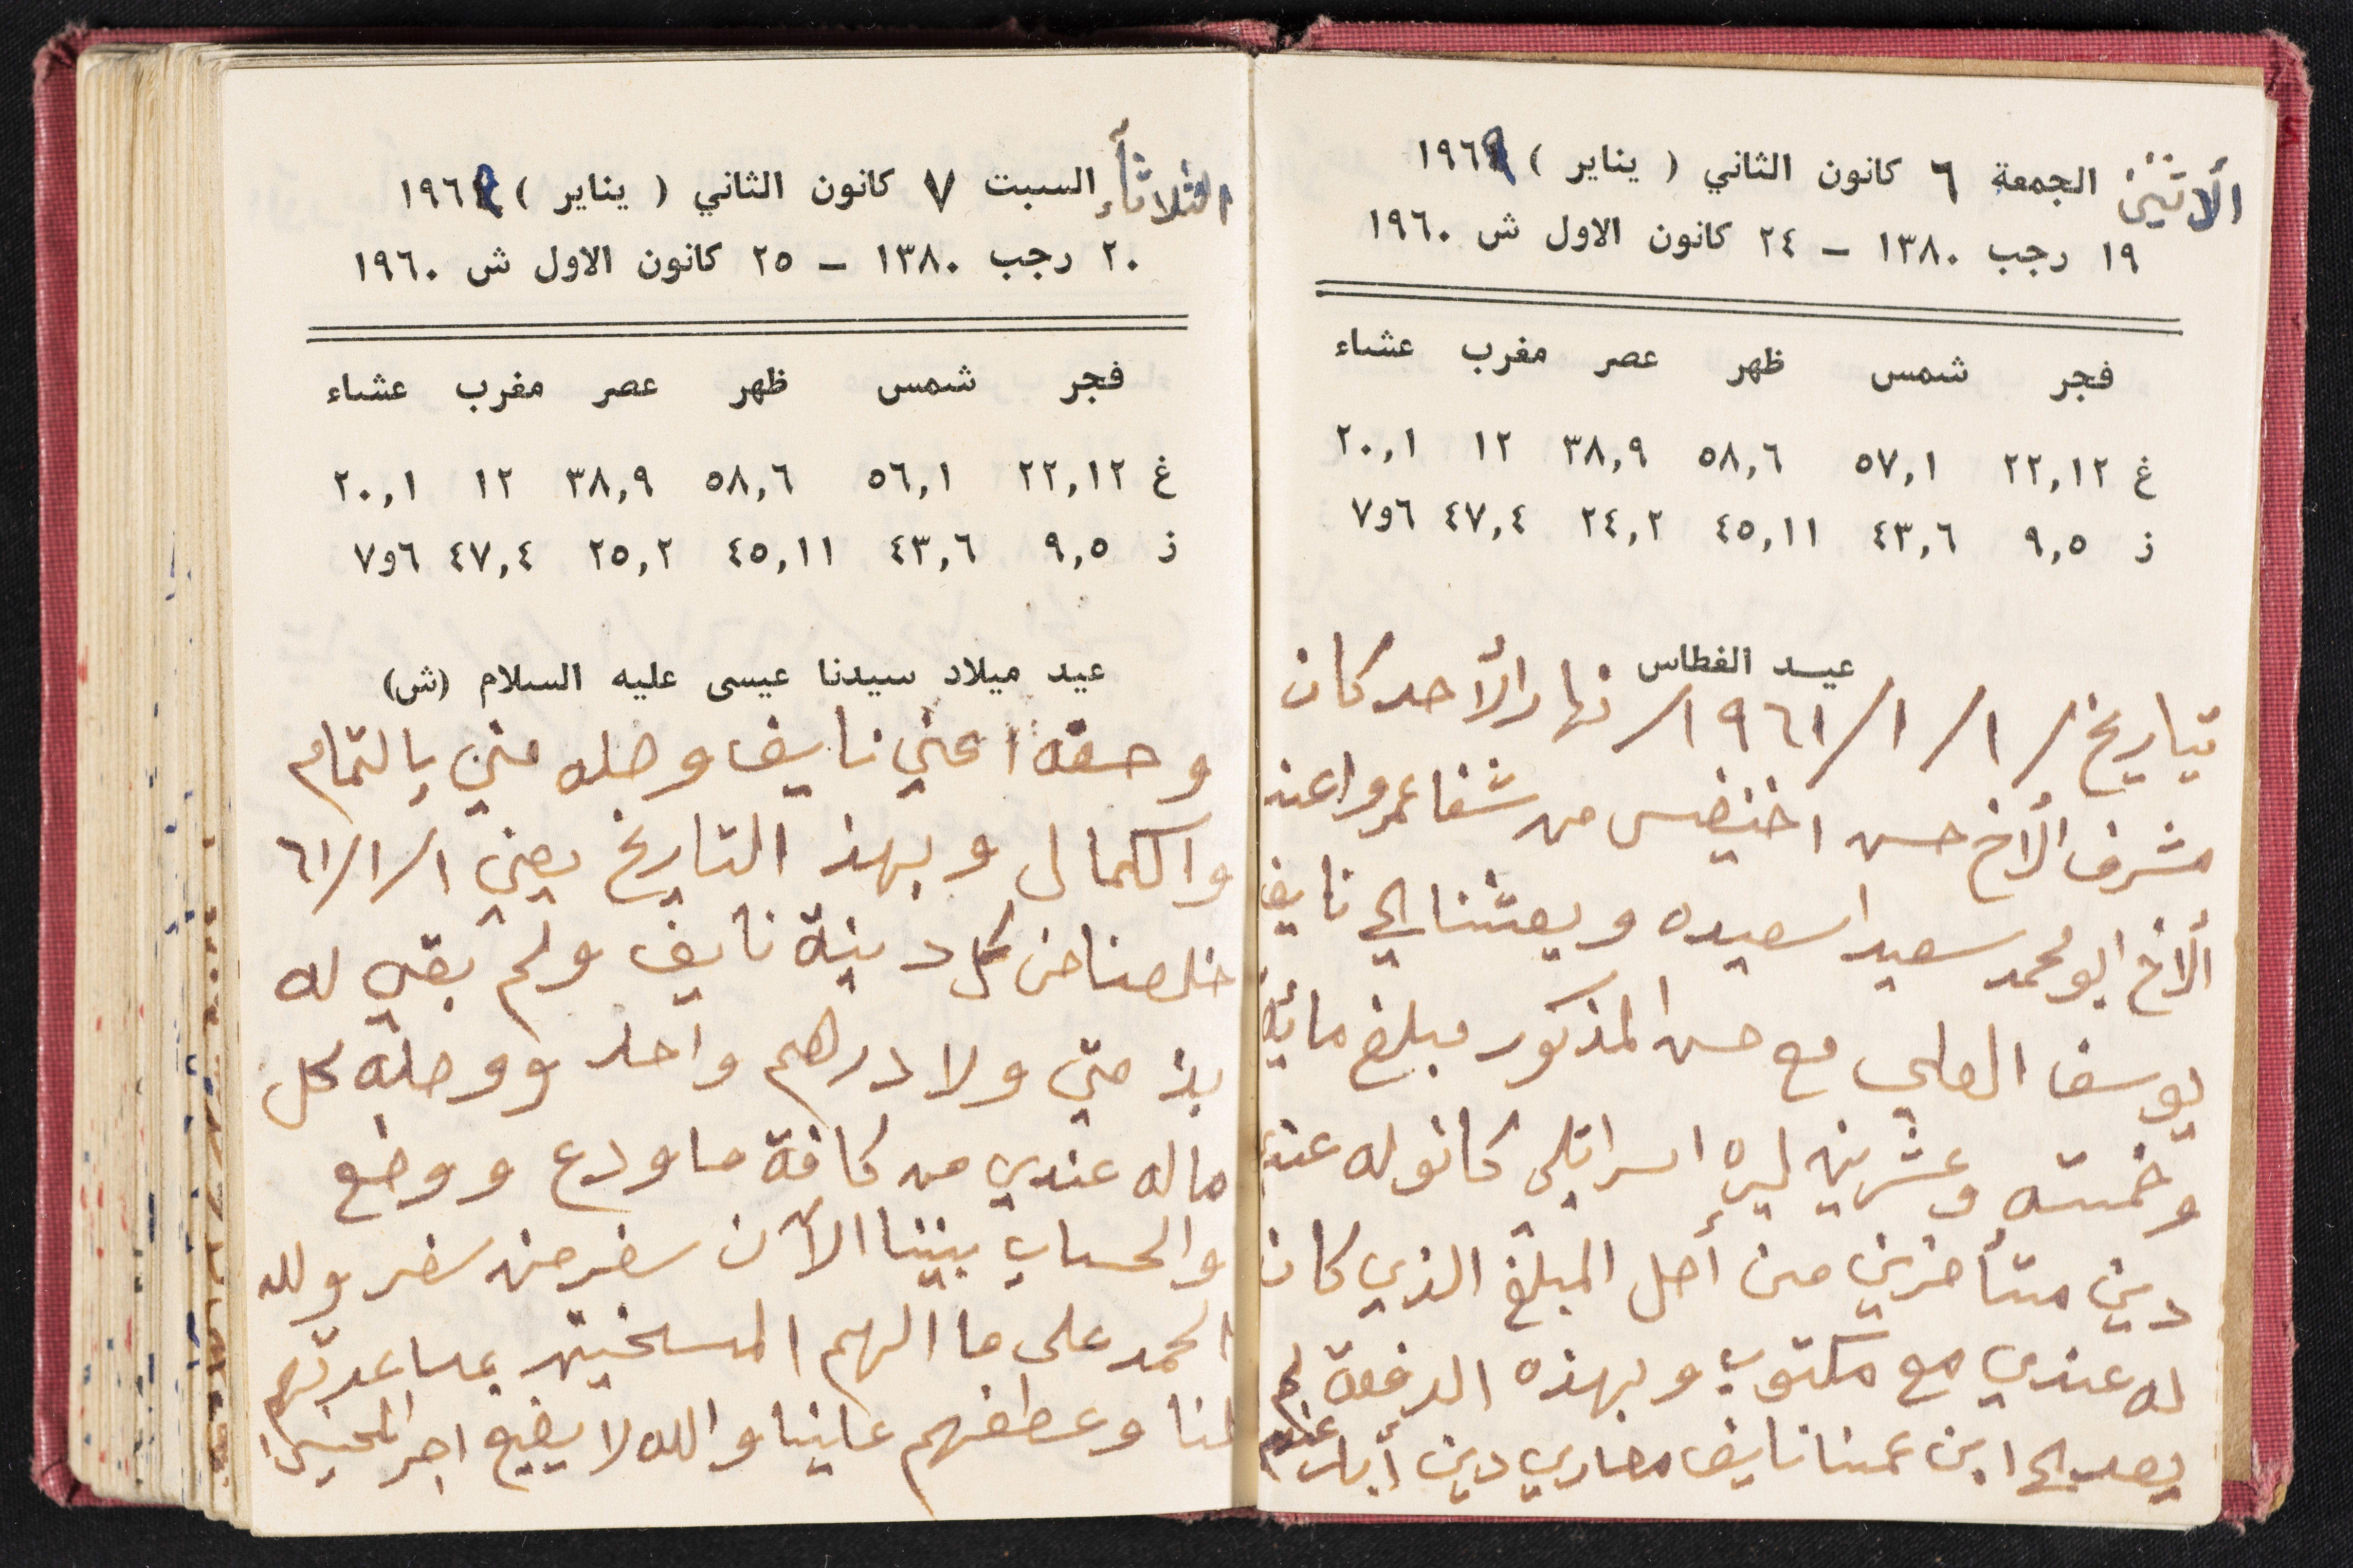 الاثنين الجمعة ٦ كانون الثاني ( يناير ) ١٩٦٩
١٩ رجب ١٣٨٠ – ٢٤ كانون الاول ش ١٩٦٠
فجر شمس ظهر عصر مغرب عشاء
غ ٢٢,١٢ ٥٧,١ ٥٨,٦ ٣٨,٩ ١٢ ٢٠,١
ز ٩,٥ ٤٣,٦ ٤٥,١١ ٢٤,٢ ٤٧,٤ ٦و٧
عيد الغطاس
بتاريخ / ١ / ١ / ١٩٦١ / نهار الأحد كان
مشرف الأخ حسن اخنيفس من شفاعمرو اعند
ألأخ ابو محمد سعيد اسعيده وبعثنا الى نايف
يوسف العلي مع حسن المذكور مبلغ مائة
وخمسه وعشرين ليره اسرائلي كانو له عندي
دين متأخرين من أصل المبلغ الذي كان
له عندي مع مكتوب وبهذه الدفعة لم
يعد الى ابن عمنا نايف مصاري دين أبلرغم
الثلاثاء السبت ٧ كانون الثاني ( يناير ) ١٩٦٩
٢٠ رجب ١٣٨٠ – ٢٥ كانون الاول ش ١٩٦٠
فجر شمس ظهر عصر مغرب عشاء
غ ٢٢,١٢ ٥٦,١ ٥٨,٦ ٣٨,٩ ١٢ ٢٠,١
ز ٩,٥ ٤٣,٦ ٤٥,١١ ٢٥,٢ ٤٧,٤ ٦و٧
عيد ميلاد سيدنا عيسى عليه السلام (ش)
وحقه اعني نايف وصله مني بالتمام
والكمال وبهذ التاريخ يعني ٦١/١/١
خلصنا من كل دينة نايف ولم بقي له
بذمتي ولا درهم واحد ووصله كل
ماله عندي من كافة ما ودع ووضع
والحساب بيننا الآن سفر من سفر ولله
الحمد على ما الهم المسخين بمساعدتهم
لنا وعطفهم علينا والله لا يضيع اجر المحسنين